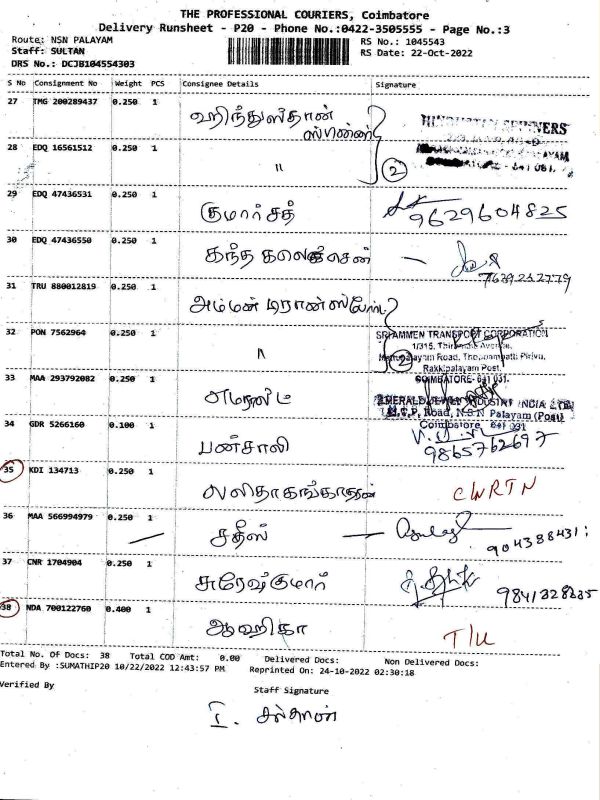 THE PROFESSIONAL COURIERS, Coimbatore
Delivery Runsheet - P20 - Phone No.:0422-3505555 - Page No.:3
Route: NSN PALAYAM
RS No.: 1045543
Staff: SULTAN
RS Date: 22-Oct-2022
DRS No.: DCJB104554303
S No Consignment No Weight PCS Consignee Details Signature
27 TMG 200289437 0.250 1
ஹிந்துஸ்தான்
HINDUSTAN SPINNERS
28 EDQ 16561512 0.250 1
"
2
641 031.
29 EDQ 47436531 0.250 1
குமார் சதீ
9629604825
30 EDQ 47436550 0.250 1
கந்த கலெக்சென் -
31 TRU 880012819 0.250 1
அம்மன் டிரான்ஸ்போர்ட்
32 PON 7562964 0.250 1
"
2
SRI AMMEN TRANSPORT CORPORATION
1/315, Avenue,
Road, Pirivu,
Rakkipalayam Post,
COIMBATORE - 641 031.
33 MAA 293792082 0.250 1
எமரால்ட்
EMERALD JEWEL INDUSTRY INDIA LTD
Road, N.S.N Palayam (Post)
Coimbatore 641 031
34 GDR 5266160 0.100 1
பன்சாலி
9865762697
35 KDI 134713 0.250 1
லலிதாகங்காதரன்
CWRTN
36 MAA 566994979 0.250 1
சதீஸ்
904388431
37 CNR 1704904 0.250 1
சுரேஷ்குமார்
38 NDA 700122760 0.400 1
ஆஹிகா
T/U
Total No. Of Docs: 38 Total COD Amt: 0.00 Delivered Docs: Non Delivered Docs:
Entered By :SUMATHIP20 10/22/2022 12:43:57 PM Reprinted On: 24-10-2022 02:30:18
Verified By
Staff Signature
I. சுல்தான்